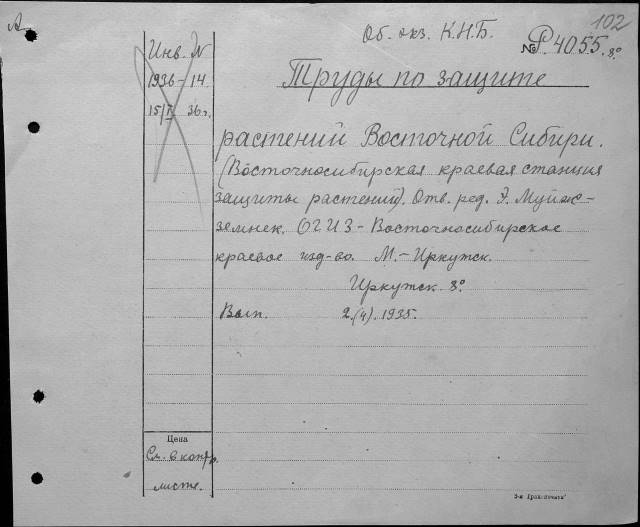 102
Об. экз. К.Н.Б.
№ Р.4055. 8°
Инв. №
1936 - 14.
15/II 36 г.
Труды по защите
растений Восточной Сибири.
(Восточносибирская краевая станция
защиты растений). Отв. ред. Э. Муйж-
земнек. ОГИЗ - Восточносибирское
краевое изд-во. М. - Иркутск.
Иркутск. 8°
Вып. 2.(4). 1935.
Цена
См. в контр.
листе.